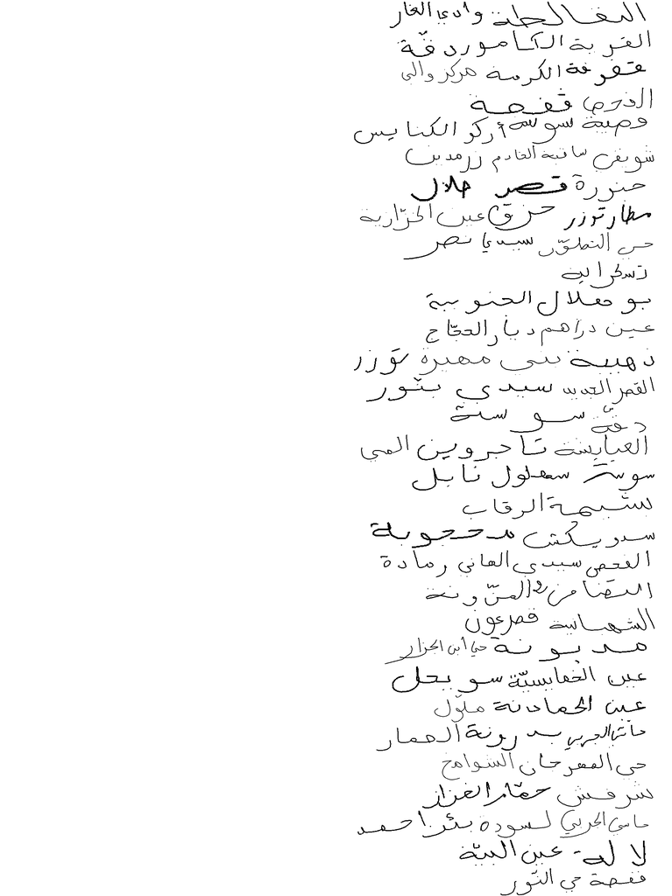 النفالطة وادي الغار
القرية الكامور دقة
قفرقة الكرمة مركز والي
قفصة
وصية سوسة أركو الكنايس
شويفي ساقية الخادم زرمدين
خنورة قصر هلال
مطار توزر حزق عين الخرّازية
حي التطوّر سيدي نصر
بو هلال الجنوبية
عين دراهم ديار الحجّاج
ذهيبة بني مهيرة توزر
القصر الجديد سيدي بنّور
دقّة سوسة
العبابسة تاجروين المحي
سوسة سهلول نابل
شيمة الرقاب
سدويكش محجوبة
الفحص سيدي الهاني رمادة
التضامن والمنّ ونة
الشهباسة قصرعون
مديونة حي ابن الجزار
عين الخمايسيّة سويحل
عين الحمادنة ملّول
حاسي الجربي بدرونة الحمار
حي المهرجان الشوامخ
شرفش حفّار الخزاز
حاسي الجربي لسودة بئر احمد
لالة عين البيّة
قفصة حي النّور